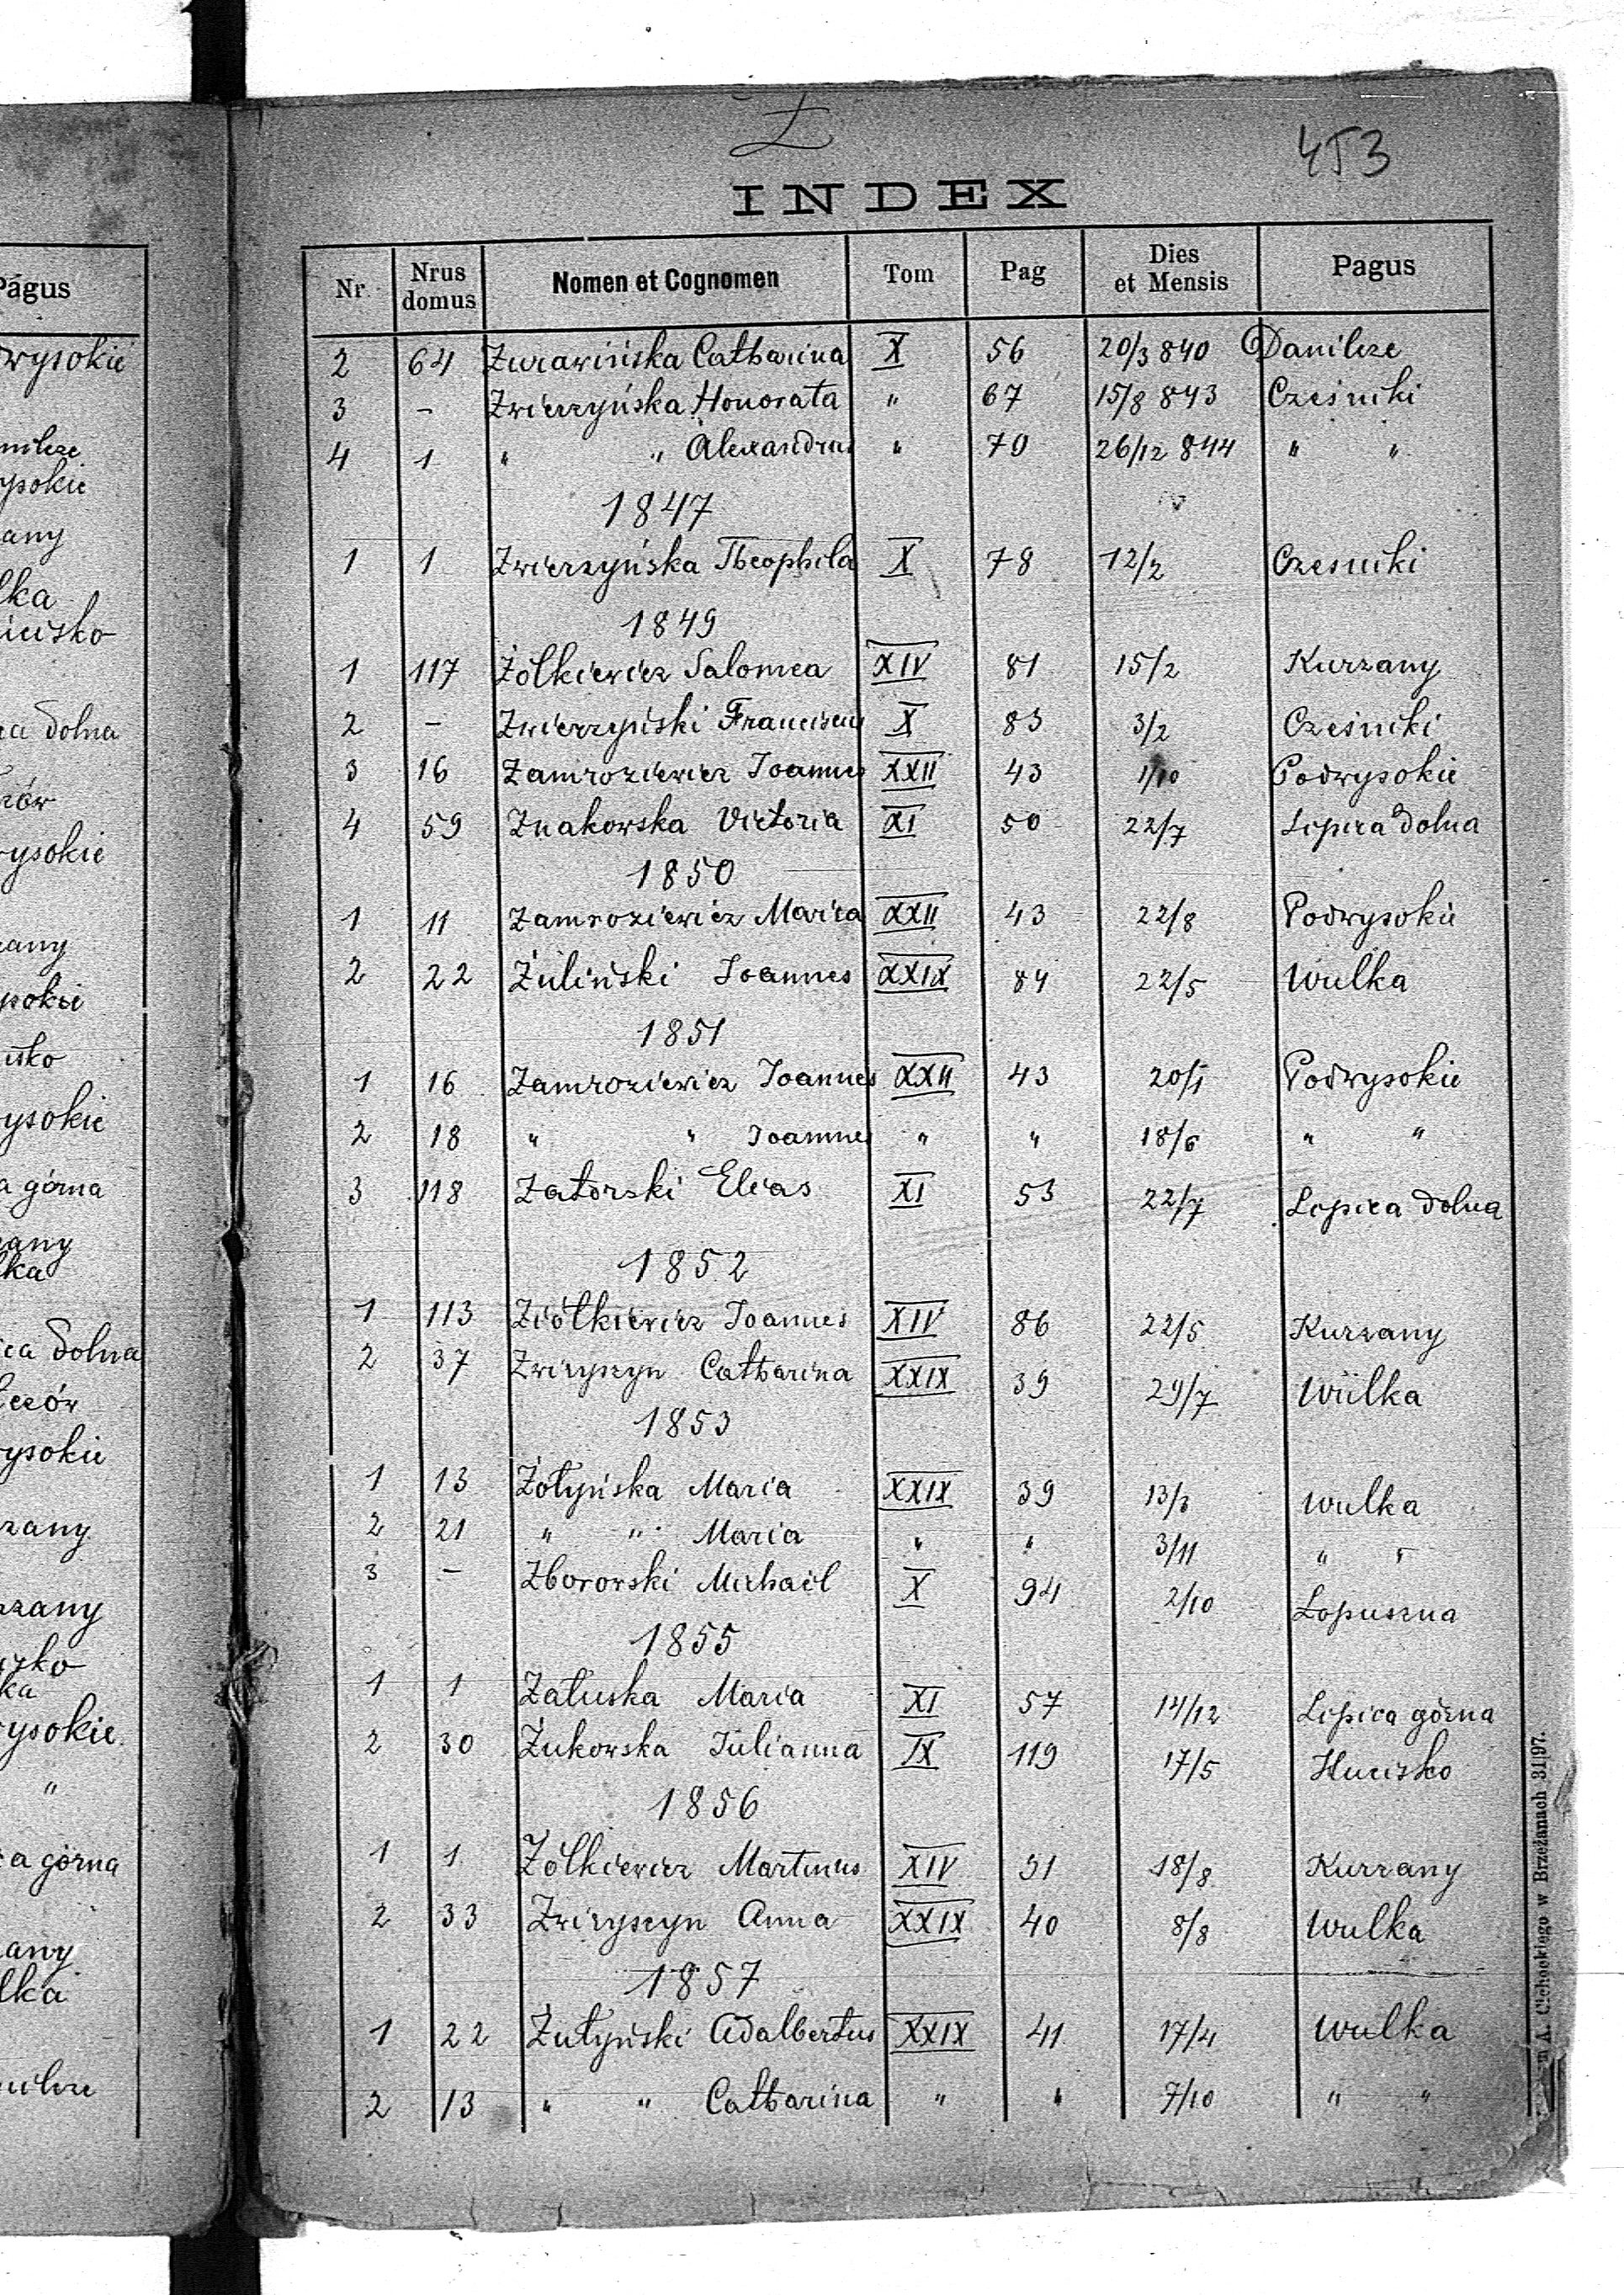 Z
453
INDEX
Nr. Nrus domus Nomen et Cognomen Tom Pag Dies et Mensis Pagus
2 64 Żurawińska Catharina X 56 20/3 840 Danilcze
3 - Zwierzyńska Honorata " 67 15/8 843 Cześniki
4 1 " " Alexandrus " 70 26/12 844 " "
1847
1 1 Zwierzyńska Theophila X 78 12/2 Czesniki
1849
1 117 Żółkiewicz Salomea XIV 81 15/2 Kurzany
2 - Zwierzyński Franciscus X 83 3/2 Cześniki
3 16 Zamroziewicz Joannes XXII 43 1/10 Podwysokie
4 59 Znakowska Victoria XI 50 22/7 Lipica dolna
1850
1 11 Zamroziewicz Maria XXII 43 22/8 Podwysokie
2 22 Żuliński Joannes XXIX 84 22/5 Wulka
1851
1 16 Zamroziewicz Joannes XXII 43 20/1 Podwysokie
2 18 " " Joannes " " 18/6 " "
3 118 Zatorski Elias XI 53 22/7 Lipica dolna
1852
1 113 Ziółkiewicz Joannes XIV 86 22/5 Kurzany
2 37 Zwiryszyn Catharina XXIX 39 29/7 Wulka
1853
1 13 Żołyńska Maria XXIX 39 13/3 Wulka
2 21 " " Maria " " 3/11 " "
3 - Zborowski Michael X 94 2/10 Lopuszna
1855
1 1 Załuska Maria XI 57 14/12 Lipica górna
2 30 Żukowska Julianna IX 119 17/5 Hucisko
1856
1 1 Żółkiewicz Martinus XIV 51 18/8 Kurzany
2 33 Zwiryszyn Anna XXIX 40 8/8 Wulka
1857
1 22 Żutyński Adalbertus XXIX 41 17/4 Wulka
2 13 " " Catharina " " 7/10 " "
A. Cichockiego w Brzeżanach 31|97.
Pagus
dolna
górna